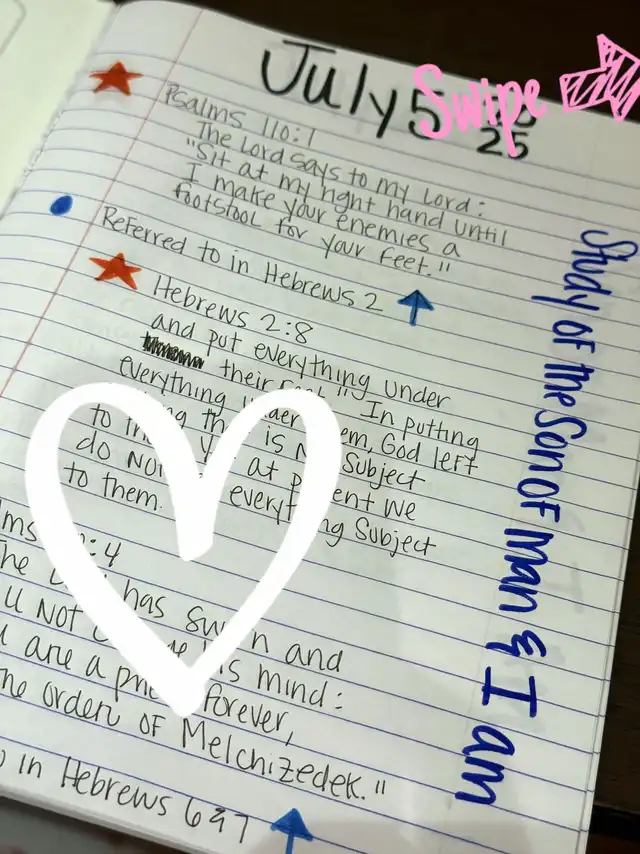 July 5
25
Swipe
Psalms 110:1
The Lord says to my Lord:
"Sit at my right hand until
I make your enemies a
footstool for your feet."
Referred to in Hebrews 2
Hebrews 2:8
and put everything under
their "In putting
everything under them, God left
is Subject
to at present we
do not everything Subject
to them.
:4
The has sworn and
not his mind:
are a priest forever,
the order of Melchizedek."
in Hebrews 6&7
Study of the Son of Man & I am